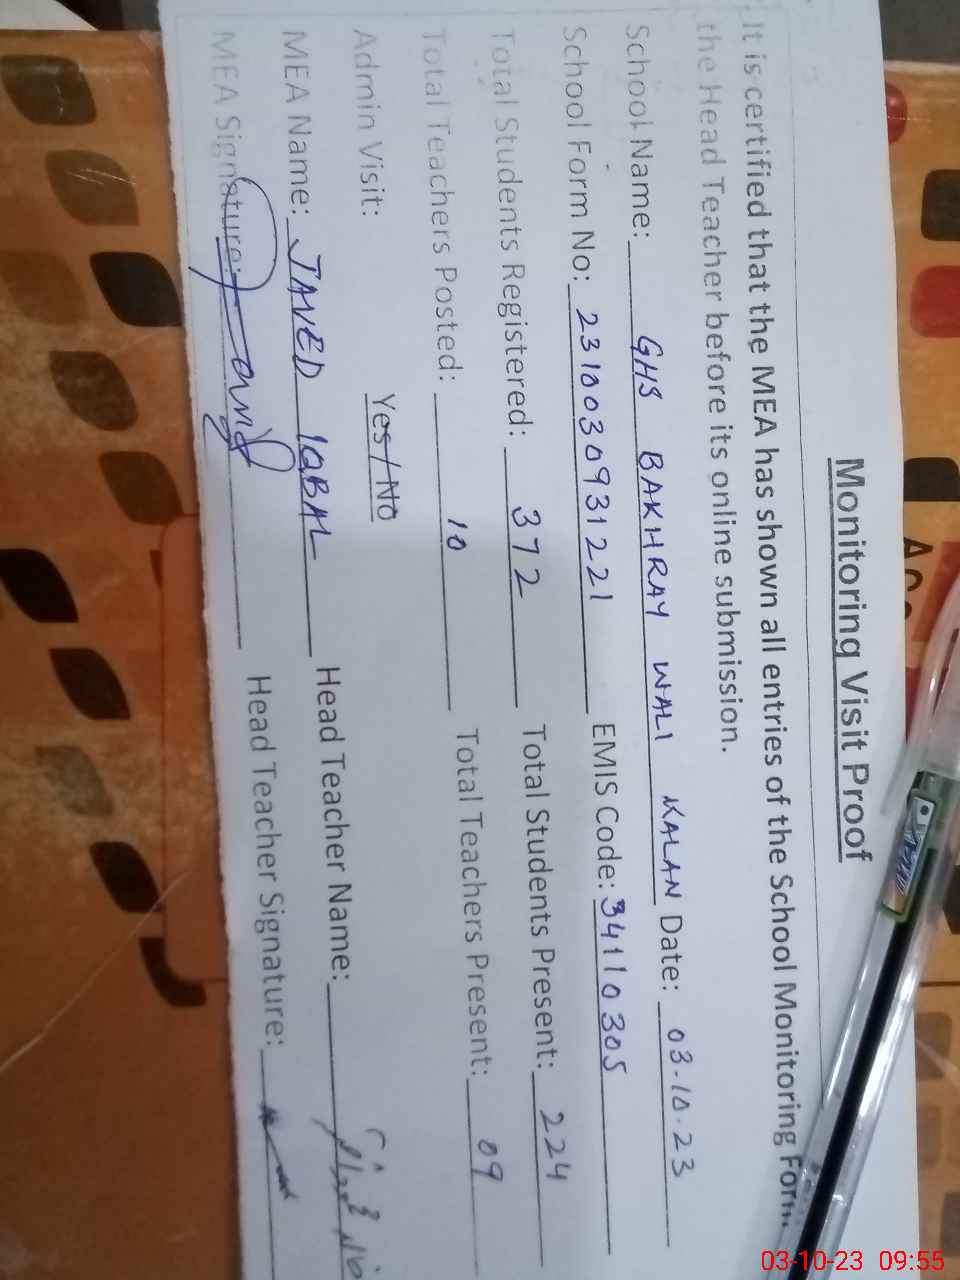 Monitoring Visit Proof
It is certified that the MEA has shown all entries of the School Monitoring Form
the Head Teacher before its online submission.
School Name: GHS BAKHRAY WALI KALAN Date: 03.10.23
School Form No: 2310030931221 EMIS Code: 34110305
Total Students Registered: 372 Total Students Present: 224
Total Teachers Posted: 10 Total Teachers Present: 09
Admin Visit: Yes/No
MEA Name: JAVED IQBAL Head Teacher Name:
MEA Signature: Head Teacher Signature:
03-10-23 09:55